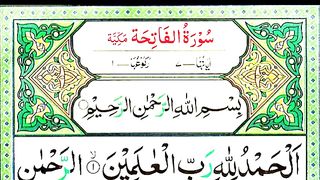 سُوْرَةُ الْفَاتِحَةِ مَكِّيَّةٌ
اٰيَاتُهَا ٧ رُكُوْعُهَا ١
بِسْمِ اللّٰهِ الرَّحْمٰنِ الرَّحِيْمِ
اَلْحَمْدُ لِلّٰهِ رَبِّ الْعٰلَمِيْنَ ۙ﴿۱﴾ الرَّحْمٰنِ